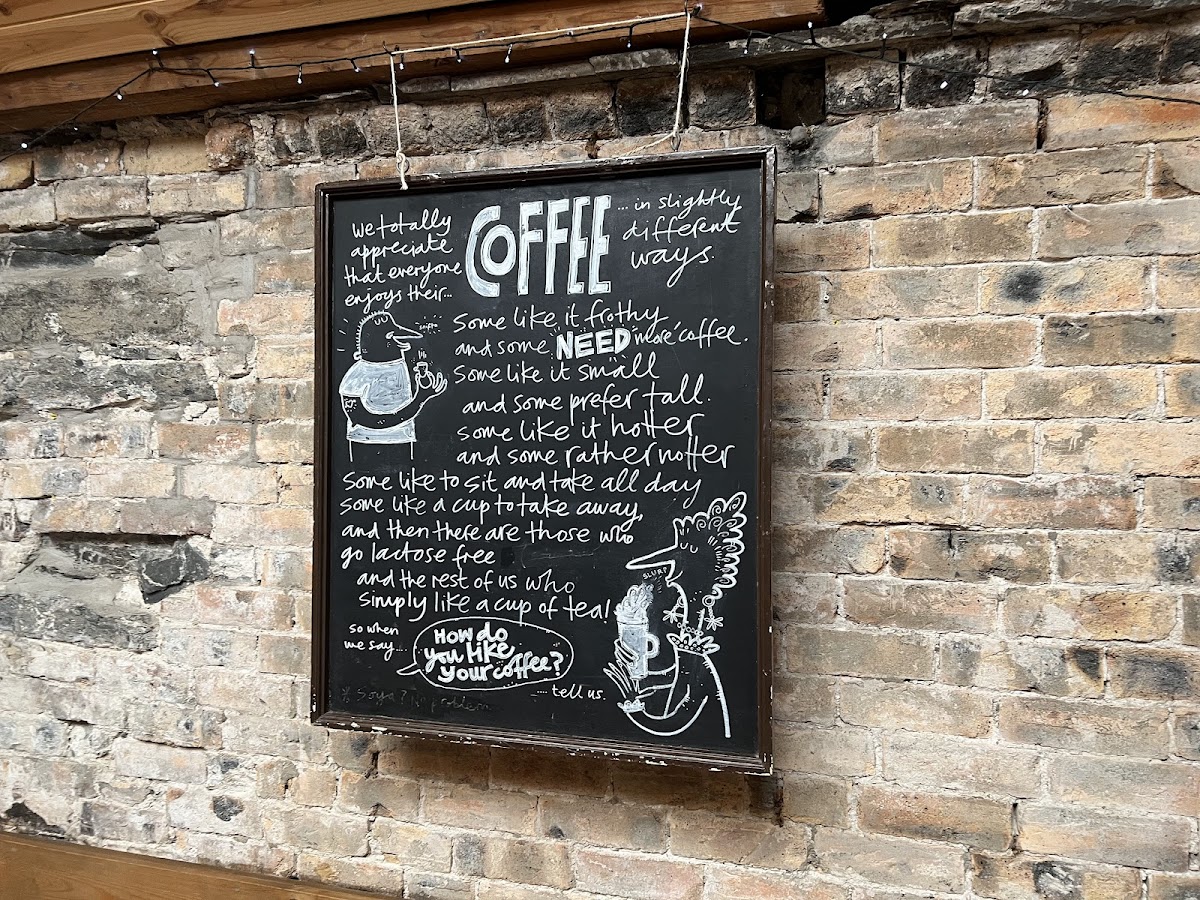 We totally
appreciate
that everyone
enjoys their...
COFFEE
... in slightly
different
ways.
sniff
Some like it frothy
and some NEED more coffee.
Some like it small
and some prefer tall.
some like it hotter
and some rather notter
Some like to sit and take all day
some like a cup to take away,
and then there are those who
go lactose free
and the rest of us who
simply like a cup of tea!
SLURP
so when
we say...
How do
you like
your coffee?
.... tell us.
Soya? No problem